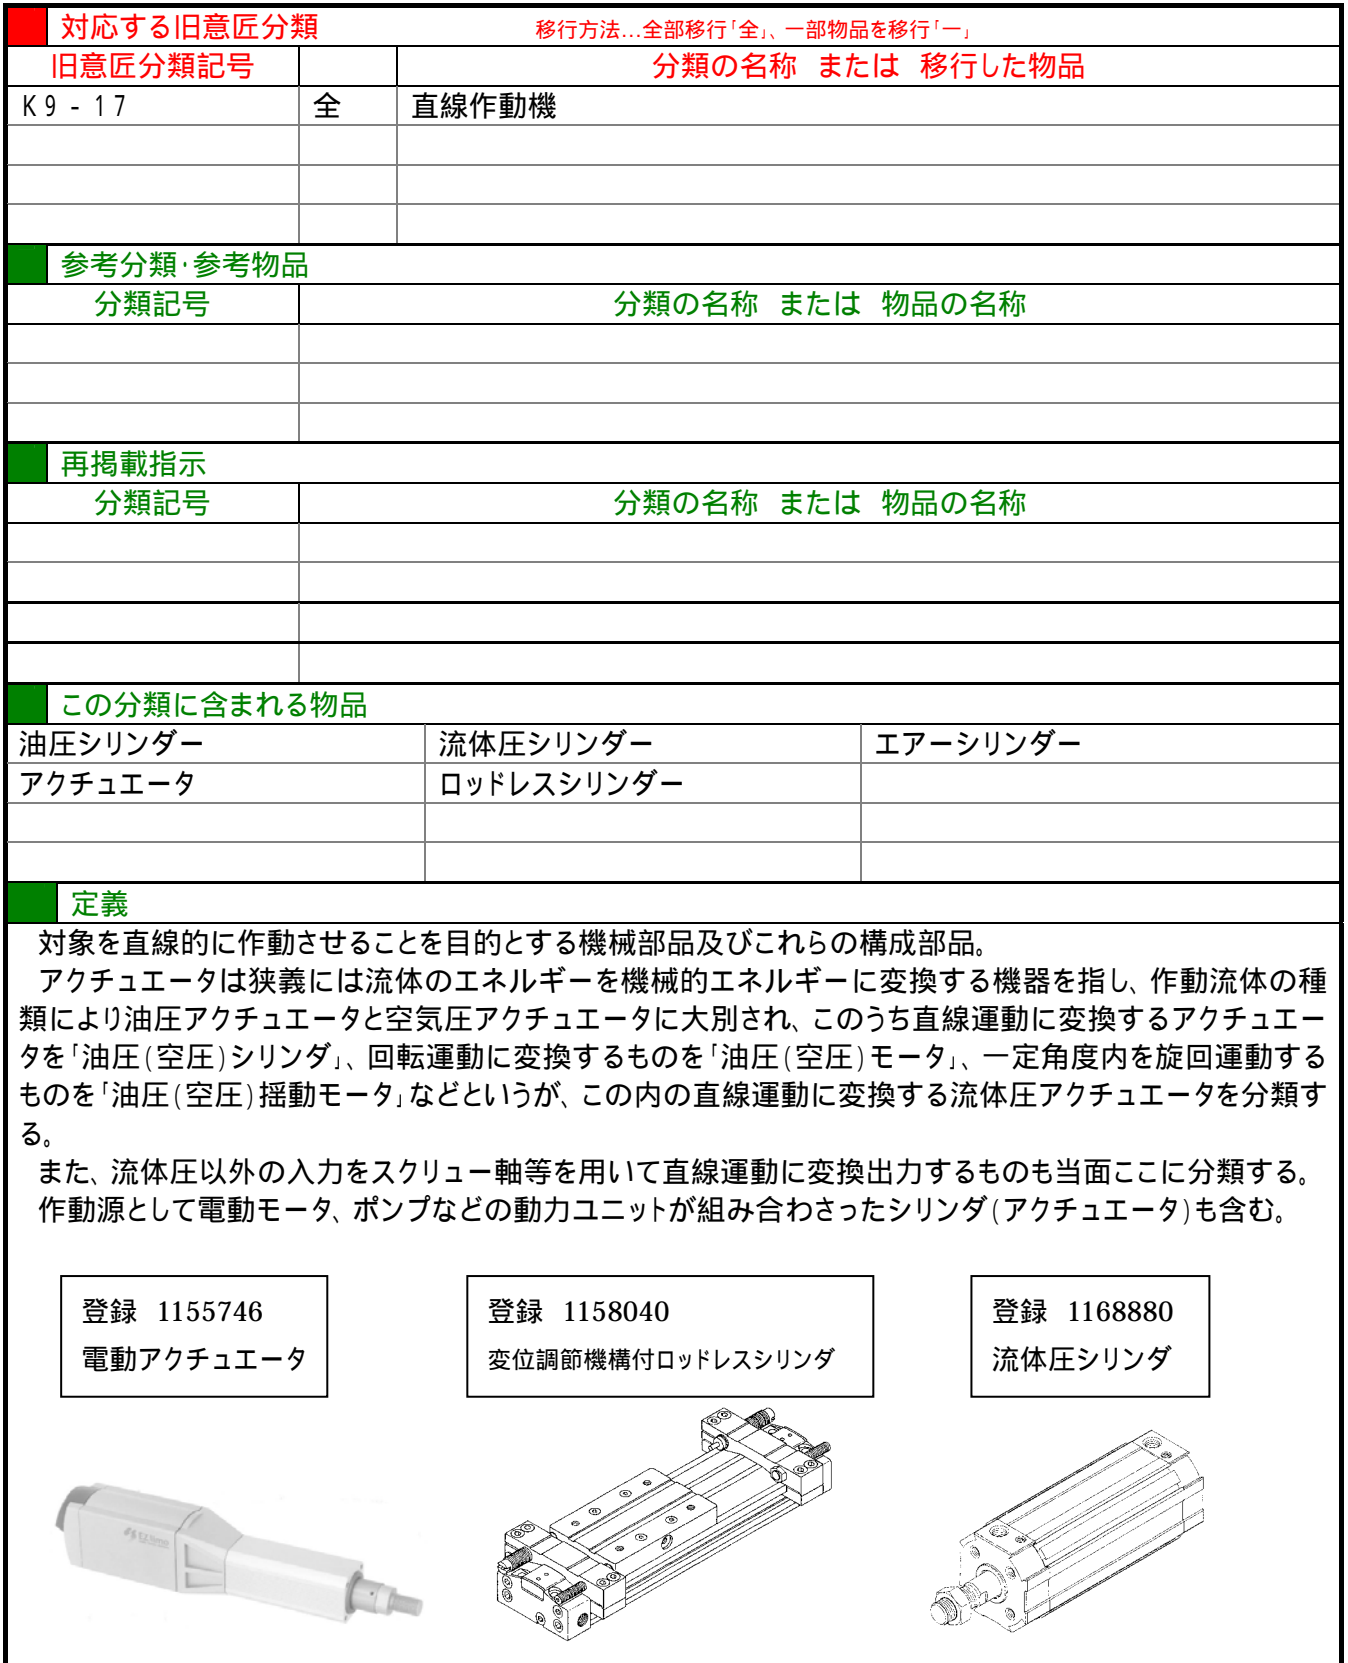 対応する旧意匠分類 移行方法…全部移行「全」、一部物品を移行「一」
旧意匠分類記号 分類の名称 または 移行した物品
K9-17 全 直線作動機
参考分類・参考物品
分類記号 分類の名称 または 物品の名称
再掲載指示
分類記号 分類の名称 または 物品の名称
この分類に含まれる物品
油圧シリンダー 流体圧シリンダー エアーシリンダー
アクチュエータ ロッドレスシリンダー
定義
対象を直線的に作動させることを目的とする機械部品及びこれらの構成部品。
アクチュエータは狭義には流体のエネルギーを機械的エネルギーに変換する機器を指し、作動流体の種
類により油圧アクチュエータと空気圧アクチュエータに大別され、このうち直線運動に変換するアクチュエー
タを「油圧(空圧)シリンダ」、回転運動に変換するものを「油圧(空圧)モータ」、一定角度内を旋回運動する
ものを「油圧(空圧)揺動モータ」などというが、この内の直線運動に変換する流体圧アクチュエータを分類す
る。
また、流体圧以外の入力をスクリュー軸等を用いて直線運動に変換出力するものも当面ここに分類する。
作動源として電動モータ、ポンプなどの動力ユニットが組み合わさったシリンダ(アクチュエータ)も含む。
登録 1155746
電動アクチュエータ
登録 1158040
変位調節機構付ロッドレスシリンダ
登録 1168880
流体圧シリンダ